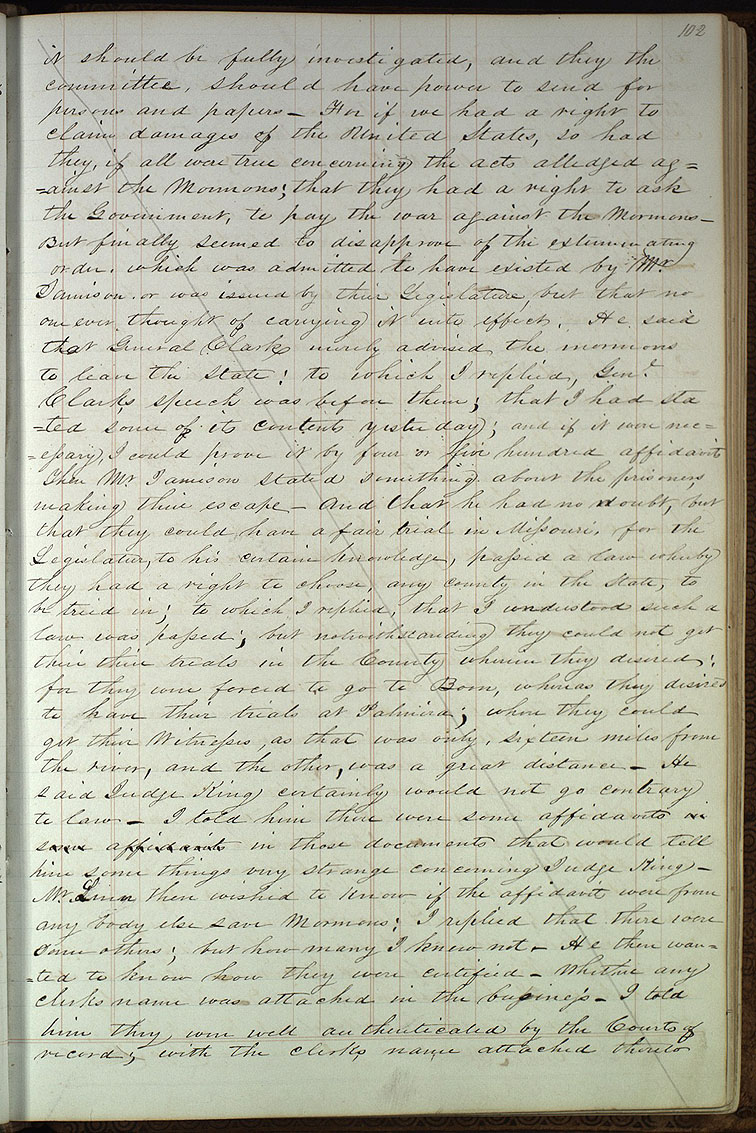 102
it should be fully investigated, and they the
committee, should have power to send for
persons and papers — For if we had a right to
claim damages of the United States, so had
they, if all were true concerning the acts alledged ag=
=ainst the Mormons; that they had a right to ask
the Government, to pay the war against the Mormons —
But finally seemed to disapprove of the exterminating
order. which was admitted to have existed by Mr.
Jamison. or was issued by their Legislature, but that no
one ever thought of carrying it into effect. He said
that General Clark merely advised the mormons
to leave the State: to which I replied, Genl.
Clarks speech was before them; that I had sta
=ted some of its contents yesterday; and if it were nec=
=essary, I could prove it by four or five hundred affidavits
Then Mr Jamison stated something about the prisoners
making their escape — And that he had no doubt, but
that they could have a fair trial in Missouri. for the
Legislature, to his certain knowledge, passed a law whereby
they had a right to choose any county in the State, to
be tried in; to which I replied, that I understood such a
law was passed; but notwithstanding they could not get
their their trials in the County wherein they desired;
for they were forced to go to Boon, whereas they desired
to have their trials at Palmira; where they could
get their Witnesses, as that was only, sixteen miles from
the river, and the other, was a great distance — He
said Judge King certainly would not go contrary
to law — I told him there were some affidavits in
some affidavits in those documents that would tell
him some things very strange concerning Judge King —
Mr. Linn then wished to know if the affidavits were from
any body else save Mormons; I replied that there were
some others; but how many I knew not — He then wan=
=ted to know how they were certified — Whether any
clerks name was attached in the business — I told
him they were well authenticated by the Courts of
record; with the clerks name attached thereto